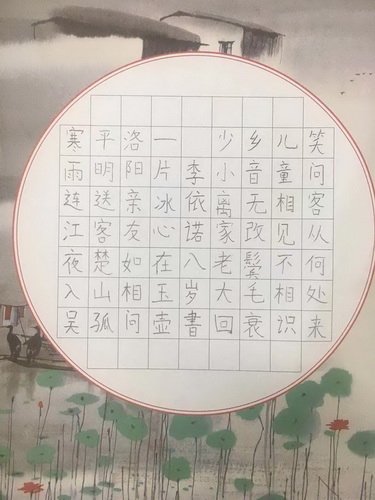 寒雨连江夜入吴
平明送客楚山孤
洛阳亲友如相问
一片冰心在玉壶
李依诺八岁書
少小离家老大回
乡音无改鬓毛衰
儿童相见不相识
笑问客从何处来